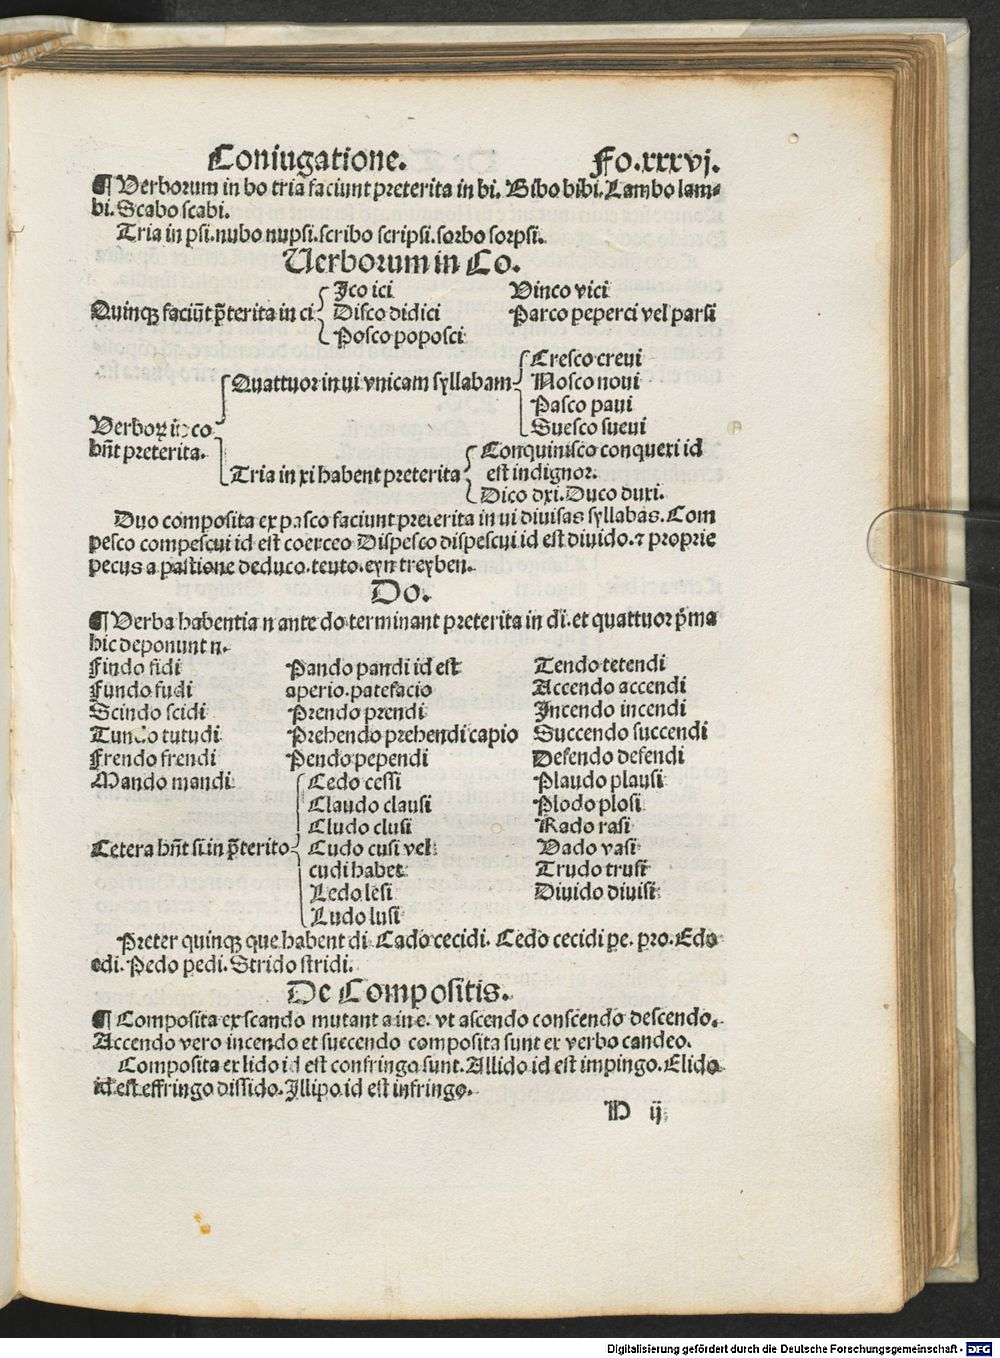 Coniugatione. Fo.xxxvj.
¶ Verborum in bo tria faciunt preterita in bi. Bibo bibi. Lambo lam⸗
bi. Scabo scabi.
Tria in psi. nubo nupsi. scribo scripsi. sorbo sorpsi.
Uerborum in Co.
Quinqꝫ faciūt p̄terita in ci
Ico ici Vinco vici
Disco didici Parco peperci vel parsi
Posco poposci
Quattuor in ui vnicam syllabam
Cresco creui
Nosco noui
Pasco paui
Suesco sueui
Verboꝝ in co
bn̄t preterita.
Tria in xi habent preterita
Conquinisco conquexi id
est indignor.
Dico dxi. Duco duxi.
Duo composita ex pasco faciunt preterita in ui diuisas syllabas. Com
pesco compescui id est coerceo Dispesco dispescui id est diuido. ⁊ proprie
pecus a pastione deduco. teuto. eyn treyben.
Do.
¶ Verba habentia n ante do terminant preterita in di. et quattuor p̄ma
hic deponunt n.
Findo fidi Pando pandi id est Tendo tetendi
Fundo fudi aperio. patefacio Accendo accendi
Scindo scidi Prendo prendi Incendo incendi
Tundo tutudi Prehendo prehendi capio Succendo succendi
Frendo frendi Pendo pependi Defendo defendi
Mando mandi Cedo cessi Plaudo plausi
Claudo clausi Plodo plosi
Cludo clusi Rado rasi
Cetera bn̄t si. in p̄terito Cudo cusi vel Vado vasi
cudi habet Trudo trusi
Ledo lesi Diuido diuisi
Ludo lusi
Preter quinqꝫ que habent di. Cado cecidi. Cedo cecidi pe. pro. Edo
edi. Pedo pedi. Strido stridi.
De Compositis.
¶ Composita ex scando mutant a in e. vt ascendo conscendo descendo.
Accendo vero incendo et succendo composita sunt ex verbo candeo.
Composita ex lido id est confringo sunt. Allido id est impingo. Elido
id est effringo dissido. Illipo id est infringo.
D ij
Digitalisierung gefördert durch die Deutsche Forschungsgemeinschaft - DFG